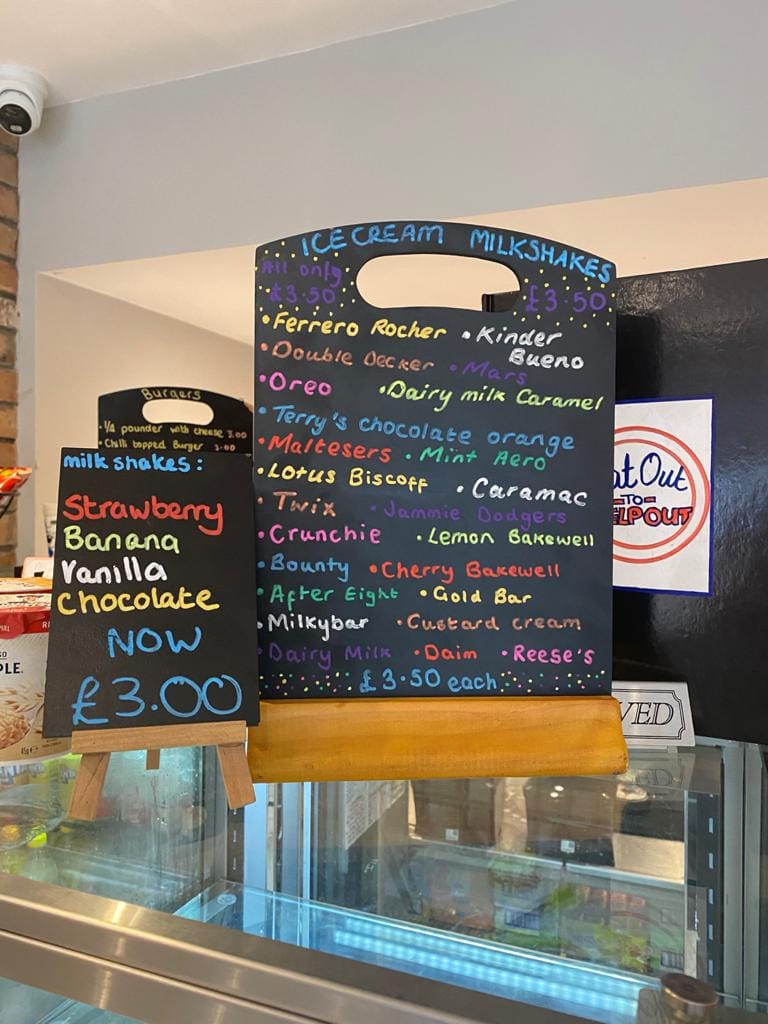 ICE CREAM MILKSHAKES
All only
£3.50
£3.50
• Ferrero Rocher • Kinder Bueno
• Double Decker • Mars
• Oreo • Dairy milk Caramel
• Terry's chocolate orange
• Maltesers • Mint Aero
• Lotus Biscoff • Caramac
• Twix • Jammie Dodgers
• Crunchie • Lemon Bakewell
• Bounty • Cherry Bakewell
• After Eight • Gold Bar
• Milkybar • Custard cream
• Dairy Milk • Daim • Reese's
£3.50 each
Burgers
• 1/4 pounder with cheese 3.00
• Chilli topped Burger 3.00
milkshakes:
Strawberry
Banana
Vanilla
Chocolate
NOW
£3.00
at Out
TO
ELP OUT
VED
PLE.